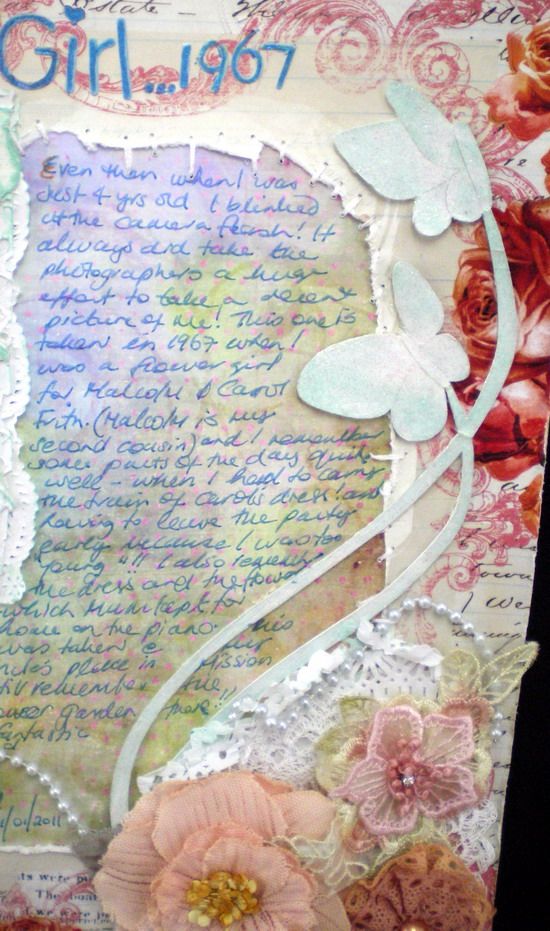 Girl...1967
Even then when I was
Just 4 yrs old I blinked
at the camera flash! It
always did take the
photographers a huge
effort to take a decent
picture of me! This one is
taken in 1967 when I
was a flower girl
for Malcolm & Carrol
Frith. (Malcolm is my
second cousin) and I remember
some parts of the day quite
well - when I had to carry
the train of Carol's dress! and
having to leave the party
early because I was too
young "!! I also remember
the dress and the flowers
which Mum kept for
home on the piano. This
was taken @
place in Mission
remember the
garden there!!!
fantastic
/01/2011
The boat
if we were pa